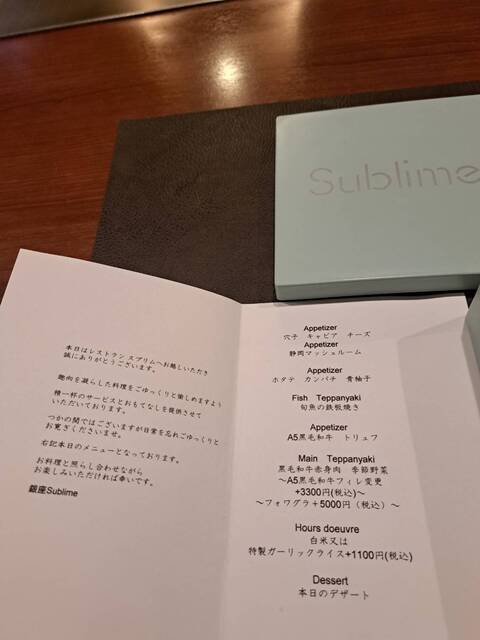 Sublime
本日はレストラン スブリムへお越しいただき
誠にありがとうございます。
趣向を凝らした料理をごゆっくりと愉しめますよう
精一杯のサービスとおもてなしを提供させて
いただいております。
つかの間ではございますが日常を忘れごゆっくりと
お寛ぎくださいませ。
右記本日のメニューとなっております。
お料理と照らし合わせながら
お楽しみいただければ幸いです。
銀座Sublime
Appetizer
穴子 キャビア チーズ
Appetizer
静岡マッシュルーム
Appetizer
ホタテ カンパチ 青柚子
Fish Teppanyaki
旬魚の鉄板焼き
Appetizer
A5黒毛和牛 トリュフ
Main Teppanyaki
黒毛和牛赤身肉 季節野菜
～A5黒毛和牛フィレ変更
+3300円(税込)～
～フォワグラ＋5000円（税込）～
Hours doeuvre
白米又は
特製ガーリックライス+1100円(税込)
Dessert
本日のデザート